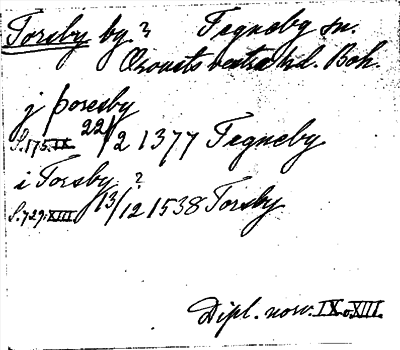 Torsby by.? Tegneby sn.
Orousts vestra hd. Boh.
j þoresby
S.175.IX 22/2 1377 Tegneby
i Torsby ?
S.729.XIII 13/12 1538 Torsby
Dipl. norv. IX o. XIII.